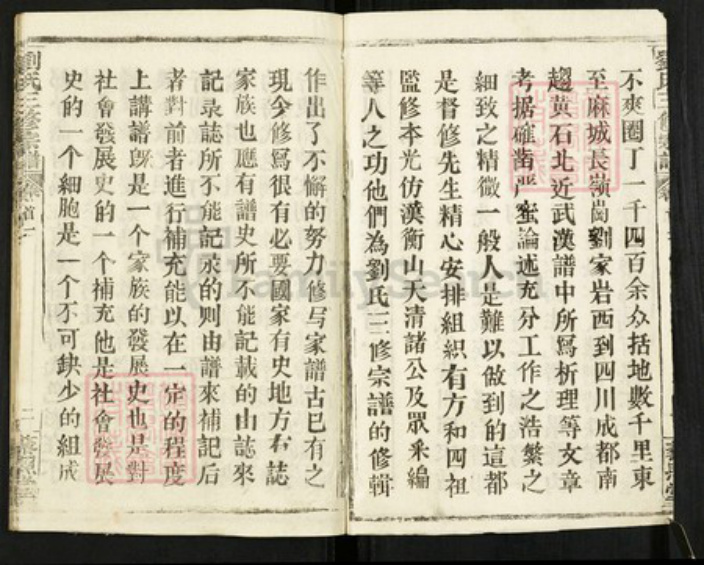 不爽圈丁一千四百余众括地數千里東
至麻城長嶺崗劉家岩西到四川成都南
趨黄石北近武漢譜中所寫析理等文章
考据確凿严蜜論述充分工作之浩繁之
細致之精微一般人是難以做到的這都
是督修先生精心安排組織有方和四祖
監修本光仿漢衡山天清諸公及眾采編
等人之功他們為劉氏三修宗譜的修輯
作出了不懈的努力修写家譜古巳有之
現今修寫很有必要國家有史地方有誌
家族也應有譜史所不能記載的由誌來
記录誌所不能記录的则由譜來補記后
者對前者進行補充能以在一定的程度
上講譜既是一个家族的發展史也是對
社會發展史的一个補充他是社會發展
史的一个細胞是一个不可缺少的組成
劉氏三修宗譜
首一
二
FamilySearch